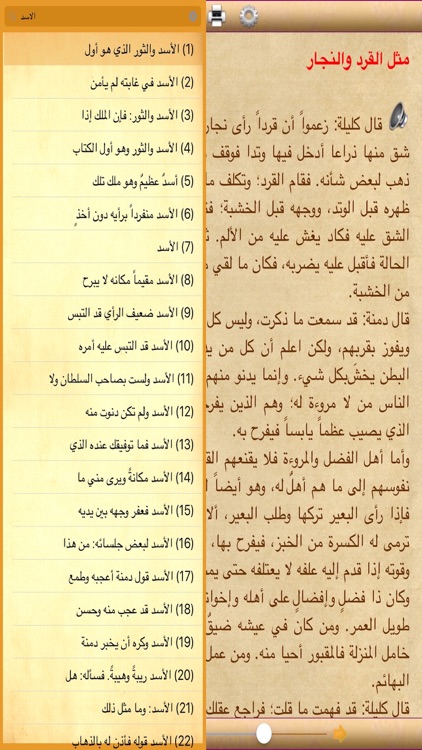 الاسد
(1) الأسد والثور الذي هو أول
(2) الأسد في غابته لم يأمن
(3) الأسد والثور: فإن الملك إذا
(4) الأسد والثور وهو أول الكتاب
(5) أسدٌ عظيمٌ وهو ملك تلك
(6) الأسد منفرداً برأيه دون أخذٍ
(7) الأسد
(8) الأسد مقيماً مكانه لا يبرح
(9) الأسد ضعيف الرأي قد التبس
(10) الأسد قد التبس عليه أمره
(11) الأسد ولست بصاحب السلطان ولا
(12) الأسد ولم تكن دنوت منه
(13) الأسد فما توفيقك عنده الذي
(14) الأسد مكانةً ويرى مني ما
(15) الأسد فعفر وجهه بين يديه
(16) الأسد لبعض جلسائه: من هذا
(17) الأسد قول دمنة أعجبه وطمع
(18) الأسد قد عجب منه وحسن
(19) الأسد وكره أن يخبر دمنة
(20) الأسد ريبةٌ وهيبةٌ. فسأله: هل
(21) الأسد: وما مثل ذلك
(22) الأسد قوله فأذن له بالذهاب
مثل القرد والنجار
قال كليلة: زعموا أن قرداً رأى نجار
شق منها ذراعا أدخل فيها وتدا فوقف
ذهب لبعض شأنه. فقام القرد؛ وتكلف ما
ظهره قبل الوتد، ووجهه قبل الخشبة؛
الشق عليه فكاد يغش عليه من الألم.
الحالة فأقبل عليه يضربه، فكان ما لقي
من الخشبة.
قال دمنة: قد سمعت ما ذكرت، وليس كل
ويفوز بقربهم، ولكن اعلم أن كل من
البطن يخشَ بكل شيء. وإنما يدنو منهم
الناس من لا مروءة له؛ وهم الذين
الذي يصيب عظماً يابساً فيفرح به.
وأما أهل الفضل والمروءة فلا يقنعهم
نفوسهم إلى ما هم أهلٌ له، وهو أيضاً
فإذا رأى البعير تركها وطلب البعير،
ترمى له الكسرة من الخبز، فيفرح بها،
وقوته إذا قدم إليه علفه لا يعتلفه حتى
وكان ذا فضلٍ وإفضالٍ على أهله
طويل العمر. ومن كان في عيشه ضيقٌ
خامل المنزلة فالمقبور أحيا منه. ومن عمل
البهائم.
قال كليلة: قد فهمت ما قلت؛ فراجع عقلك